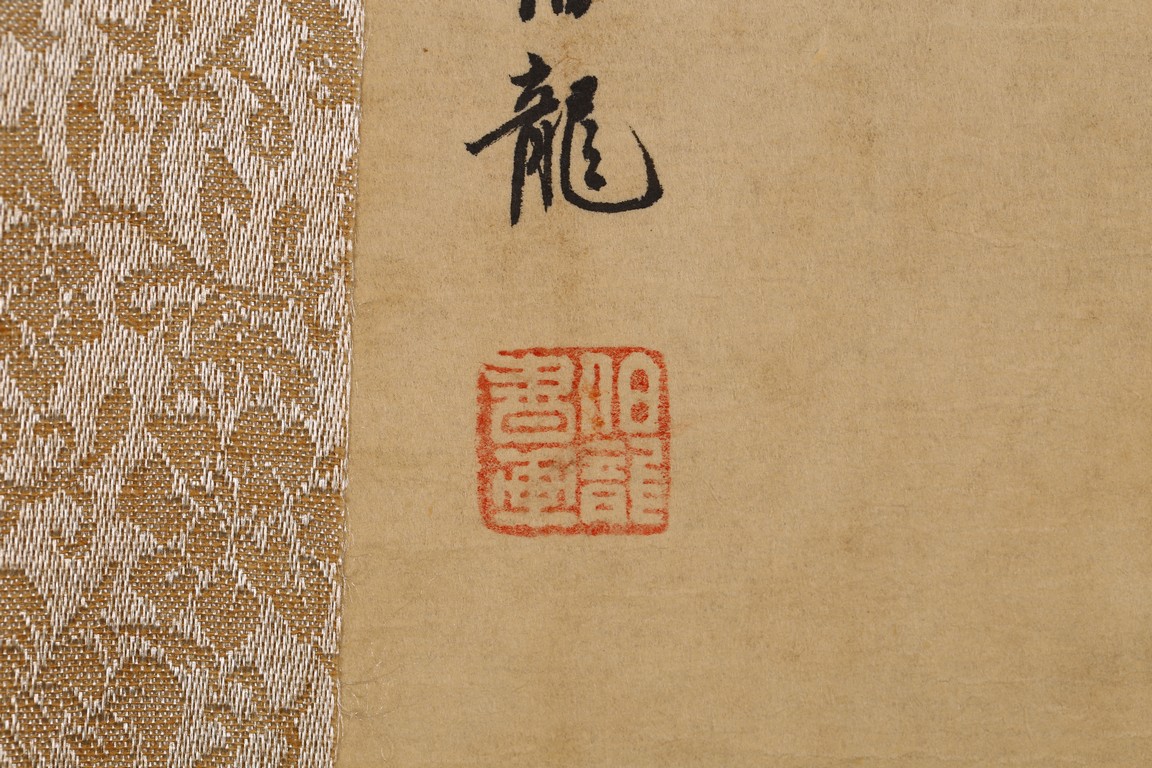 龍
伯龍
書畫